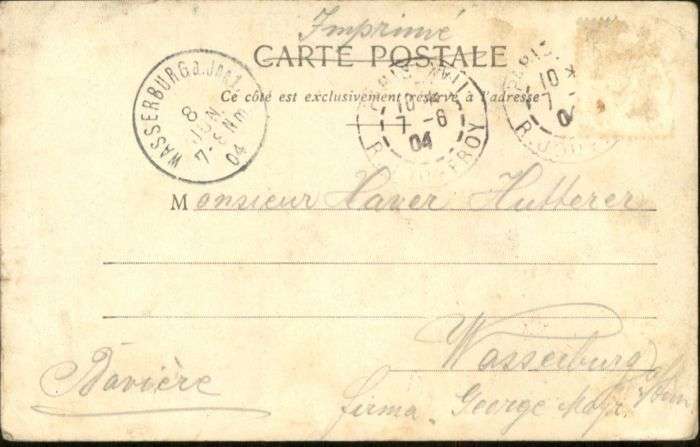 Imprimé
CARTE POSTALE
Ce côté est exclusivement réservé à l'adresse
WASSERBURG a. Inn 1
8
JUN
7-8 Nm
04
PARIS
10
7-6
04
R. JOUFFROY
PARIS
10
7-
0
R. JOU
Monsieur Xaver Hutterer
Wasserburg
Bavière
firma George Mayr